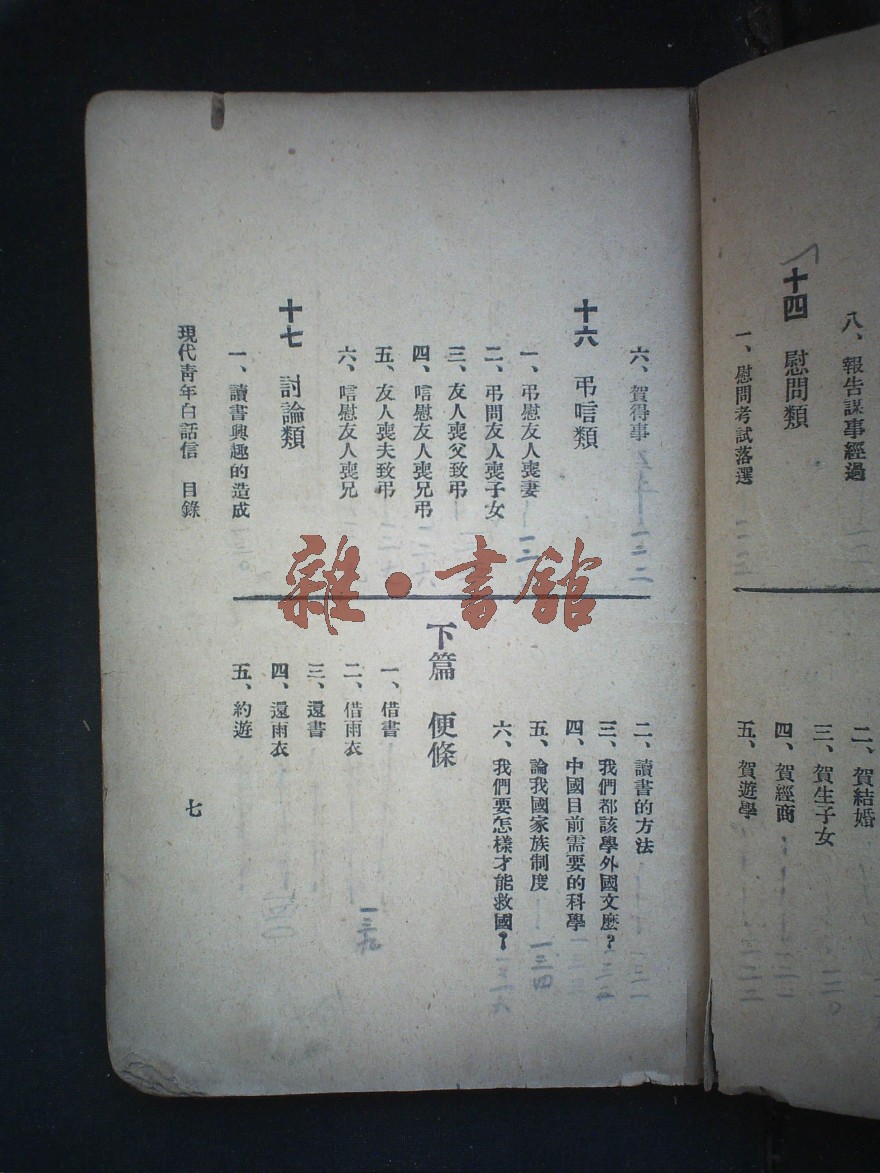 八、報告謀事經過
十四 慰問類
一、慰問考試落選
二、賀結婚
三、賀生子女
四、賀經商
五、賀遊學
一二〇
一二一
一二二
六、賀得事
一二二
十六 弔唁類
一、弔慰友人喪妻
二、弔問友人喪子女
三、友人喪父致弔
四、唁慰友人喪兄弔
五、友人喪夫致弔
六、唁慰友人喪兄
十七 討論類
一、讀書興趣的造成
一三〇
二、讀書的方法
一三一
三、我們都該學外國文麼？
一三二
四、中國目前需要的科學
一三三
五、論我國家族制度
一三四
六、我們要怎樣才能救國？
一三六
下篇 便條
一、借書
一三九
二、借雨衣
三、還書
四、還雨衣
五、約遊
現代青年白話信 目錄
七
雜·書館